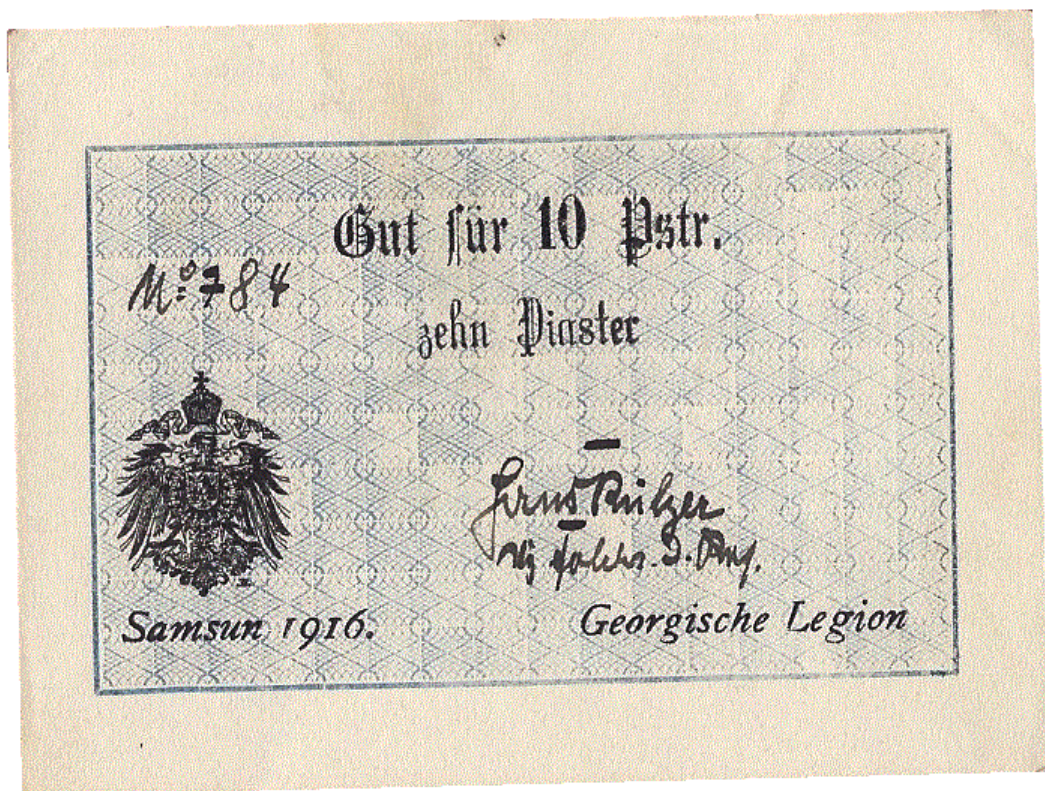 Gut für 10 Pstr.
No: 784
zehn Piaster
Samsun 1916.
Georgische Legion